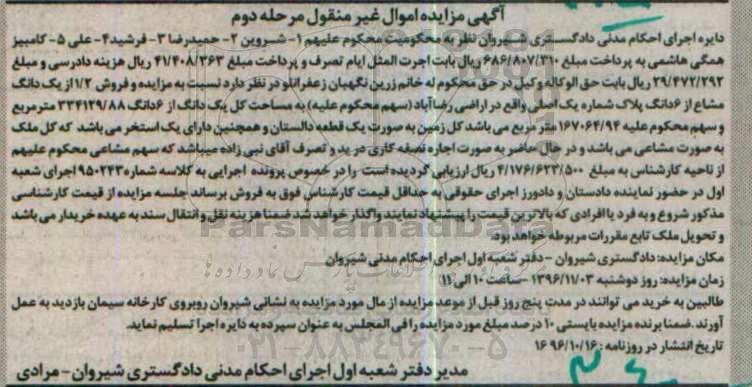 آگهی مزایده اموال غیر منقول مرحله دوم
دایره اجرای احکام مدنی دادگستری شیروان نظر به محکومیت محکوم علیهم ۱- شروین ۲- حمیدرضا ۳- فرشید ۴- علی ۵- کامبیز
همگی هاشمی به پرداخت مبلغ ۶۸۶/۸۰۷/۳۱۰ ریال بابت اجرت المثل ایام تصرف و پرداخت مبلغ ۴۱/۴۰۸/۳۶۳ ریال هزینه دادرسی و مبلغ
۲۹/۴۷۲/۲۹۲ ریال بابت حق الوکاله وکیل در حق محکوم له خانم زرین نگهبان زعفرانلو در نظر دارد نسبت به مزایده و فروش ۱/۲ از یک دانگ
مشاع از ۶دانگ پلاک شماره یک اصلی واقع در اراضی رضاآباد (سهم محکوم علیه) به مساحت کل یک دانگ از ۶دانگ ۳۳۴۱۲۹/۸۸ مترمربع
و سهم محکوم علیه ۱۶۷۰۶۴/۹۴ متر مربع می باشد کل زمین به صورت یک قطعه دالستان و همچنین دارای یک استخر می باشد که کل ملک
به صورت مشاعی می باشد و در حال حاضر به صورت اجاره نصفه کاری در ید و تصرف آقای نبی زاده میباشد که سهم مشاعی محکوم علیهم
از ناحیه کارشناس به مبلغ ۴/۱۷۶/۶۲۳/۵۰۰ ریال ارزیابی گردیده است را در خصوص پرونده اجرایی به کلاسه شماره ۹۵۰۲۴۳ اجرای شعبه
اول در حضور نماینده دادستان و دادورز اجرای حقوقی به حداقل قیمت کارشناس فوق به فروش برساند جلسه مزایده از قیمت کارشناسی
مذکور شروع و به فرد یا افرادی که بالاترین قیمت را پیشنهاد نمایند واگذار خواهد شد ضمنا هزینه نقل و انتقال سند به عهده خریدار می باشد
و تحویل ملک تابع مقررات مربوطه خواهد بود.
مکان مزایده: دادگستری شیروان -دفتر شعبه اول اجرای احکام مدنی شیروان
زمان مزایده: روز دوشنبه ۱۳۹۶/۱۱/۰۳ -ساعت ۱۰ الی ۱۱
طالبین به خرید می توانند در مدت پنج روز قبل از موعد مزایده از مال مورد مزایده به نشانی شیروان روبروی کارخانه سیمان بازدید به عمل
آورند .ضمنا برنده مزایده بایستی ۱۰ درصد مبلغ مورد مزایده را فی المجلس به عنوان سپرده به دایره اجرا تسلیم نماید.
تاریخ انتشار در روزنامه: ۹۶/۱۰/۱۶ ۱۶
مدیر دفتر شعبه اول اجرای احکام مدنی دادگستری شیروان- مرادی
ParsNamadData
۰۲۱-۸۸۳۴۹۶۷۰-۵